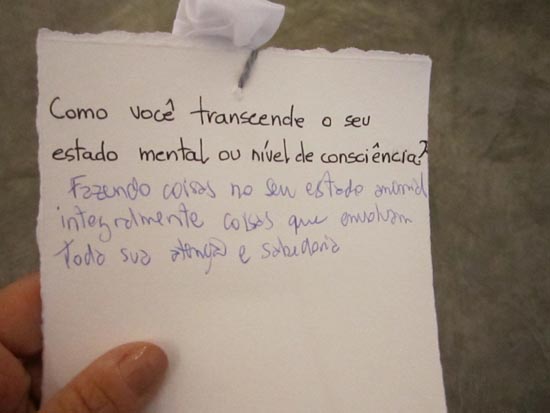 Como você transcende o seu
estado mental ou nível de consciência?
Fazendo coisas no seu estado animal
integralmente coisas que envolvam
toda sua atenção e sabedoria